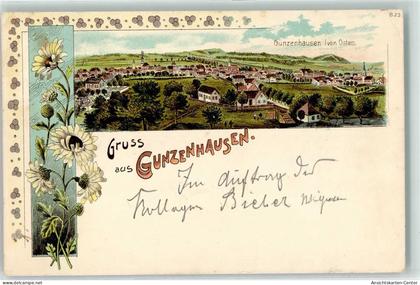 Gunzenhausen von Osten.
Gruss
aus GUNZENHAUSEN.
Im Auftrag der
Kollegen Bieber
Ansichtskarten-Center